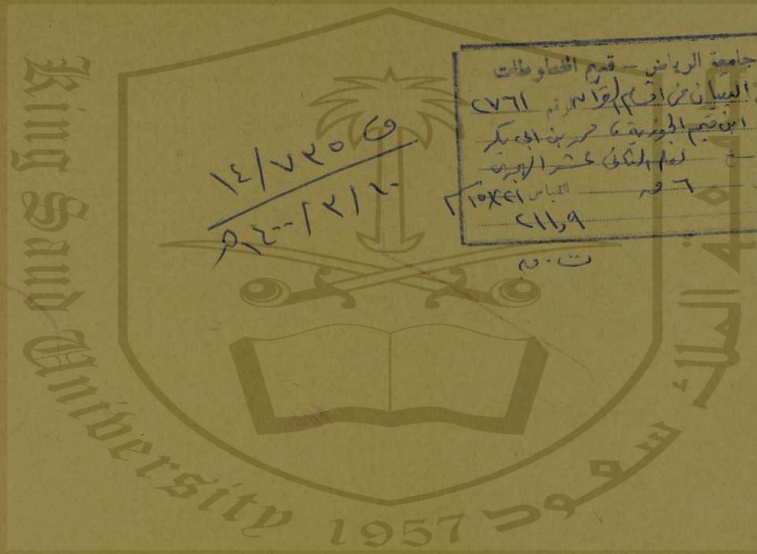 جامعة الرياض - قسم المخطوطات
البيان من اقسام القرآن رقم ٢٧٦١
ابن قيم الجوزية، محمد بن ابي بكر
لعله الثاني عشر الهجري
٦ ق القياس ٢١×١٥
٢١١,٩
ت . ق
ف ٧٣٥/١٤
١٤٠٠/٣/١٠هـ
King Saud University
1957
جامعة الملك سعود